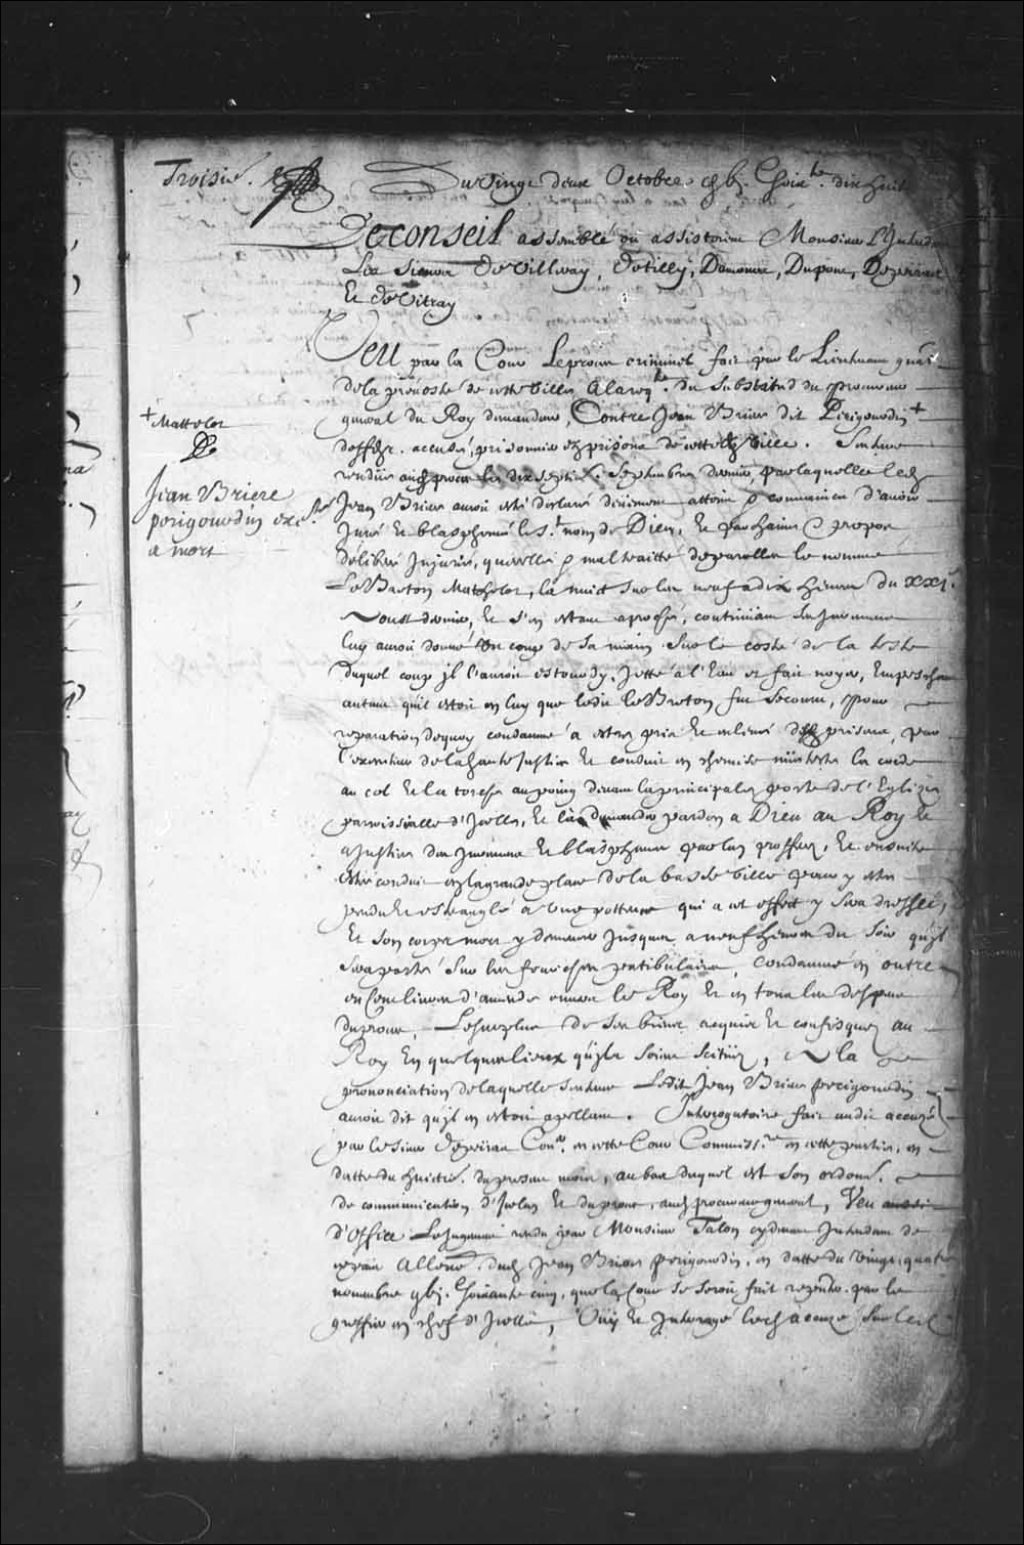 Troisie.
Du Vingt deux Octobre gbj. Soixte. dix huit
Le conseil assemblé ou assistoient Monsieur L'Intendt
Les Sieurs de Villeray, de Tilly, Damours, Dupont, Depeiras
Et de Vitray
Veu par la Cour Le proces criminel fait par le Lieutenant gnal
de la prevosté de cette ville A la reqte. du Substitud du procureur
general du Roy demandeur, Contre Jean Briere dit Perigourdin +
deffr. accusé, prisonnier ez prisons de cette ville. Sentence
rendue aud procez le dix septie. Septembre dernier, par laquelle led
Jean Briere auroit esté declaré deüement attaint & convaincu d'avoir
Juré et blasphemé le St. nom de Dieu, et par haine & propos
deliberé Injurié, querellé & maltraitté de parolles le nommé
Le Breton Matelot, la nuict sur les neuf a dix heures du xxje.
Aoust dernier, et s'en estant aproché, continuant ses Injures
luy auroit donné un coup de sa main sur le costé de la teste
duquel coup jl l'auroit estourdy, Jetté à l'Eau et fait noyer, Empeschant
autant quil estoit en luy que ledit le Breton fut secouru, pour
reparation dequoy condamné à estre pris et enlevé desd prisons, par
l'executeur de la haute Justice et conduit en chemise nüe teste la corde
au col et la torche au poing devant la principalle porte de l'Eglise
parroissialle d'Icelle, et là demander pardon a Dieu au Roy et
a Justice des Juremens et blasphemes par luy proferez, et ensuite
estre conduit en la grande place de la basse ville pour y estre
pendu et estranglé a une pottence qui a cet effect y sera dressée,
et son corps mort y demeurer Jusques a neuf heures du soir qu'jl
sera porté sur les fourches patibulaires, condamné en outre
en Cent livres d'amende envers le Roy et en tous les despens
du procez, Le surplus de ses biens acquis et confisquez au
Roy En quelques lieux qu'jls soient scituez, A la
prononciation de laquelle sentence Ledit Jean Briere perigourdin
auroit dit qu'jl en estoit apellant. Interrogatoire fait audit accusé
par le sieur Depeiras Coner. en cette Cour Commisre. en cette partie, en
datte du huitie. du present mois, au bas duquel est son ordonce.
de communication d'Iceluy et du procez, aud procureur general, Veu aussi
d'Office Le Jugement rendu par Monsieur Talon cy devant Intendant de
ce païs Allencontre dud Jean Briere perigourdin, en datte du vingt quatre
novembre gbj. soixante cinq, que la Cour se seroit fait represter. par le
greffier en chef d'Icelle, Oüy et Interrogé led accusé sur le
+ Mattelot
Jean Briere
perigourdin exe
a mort